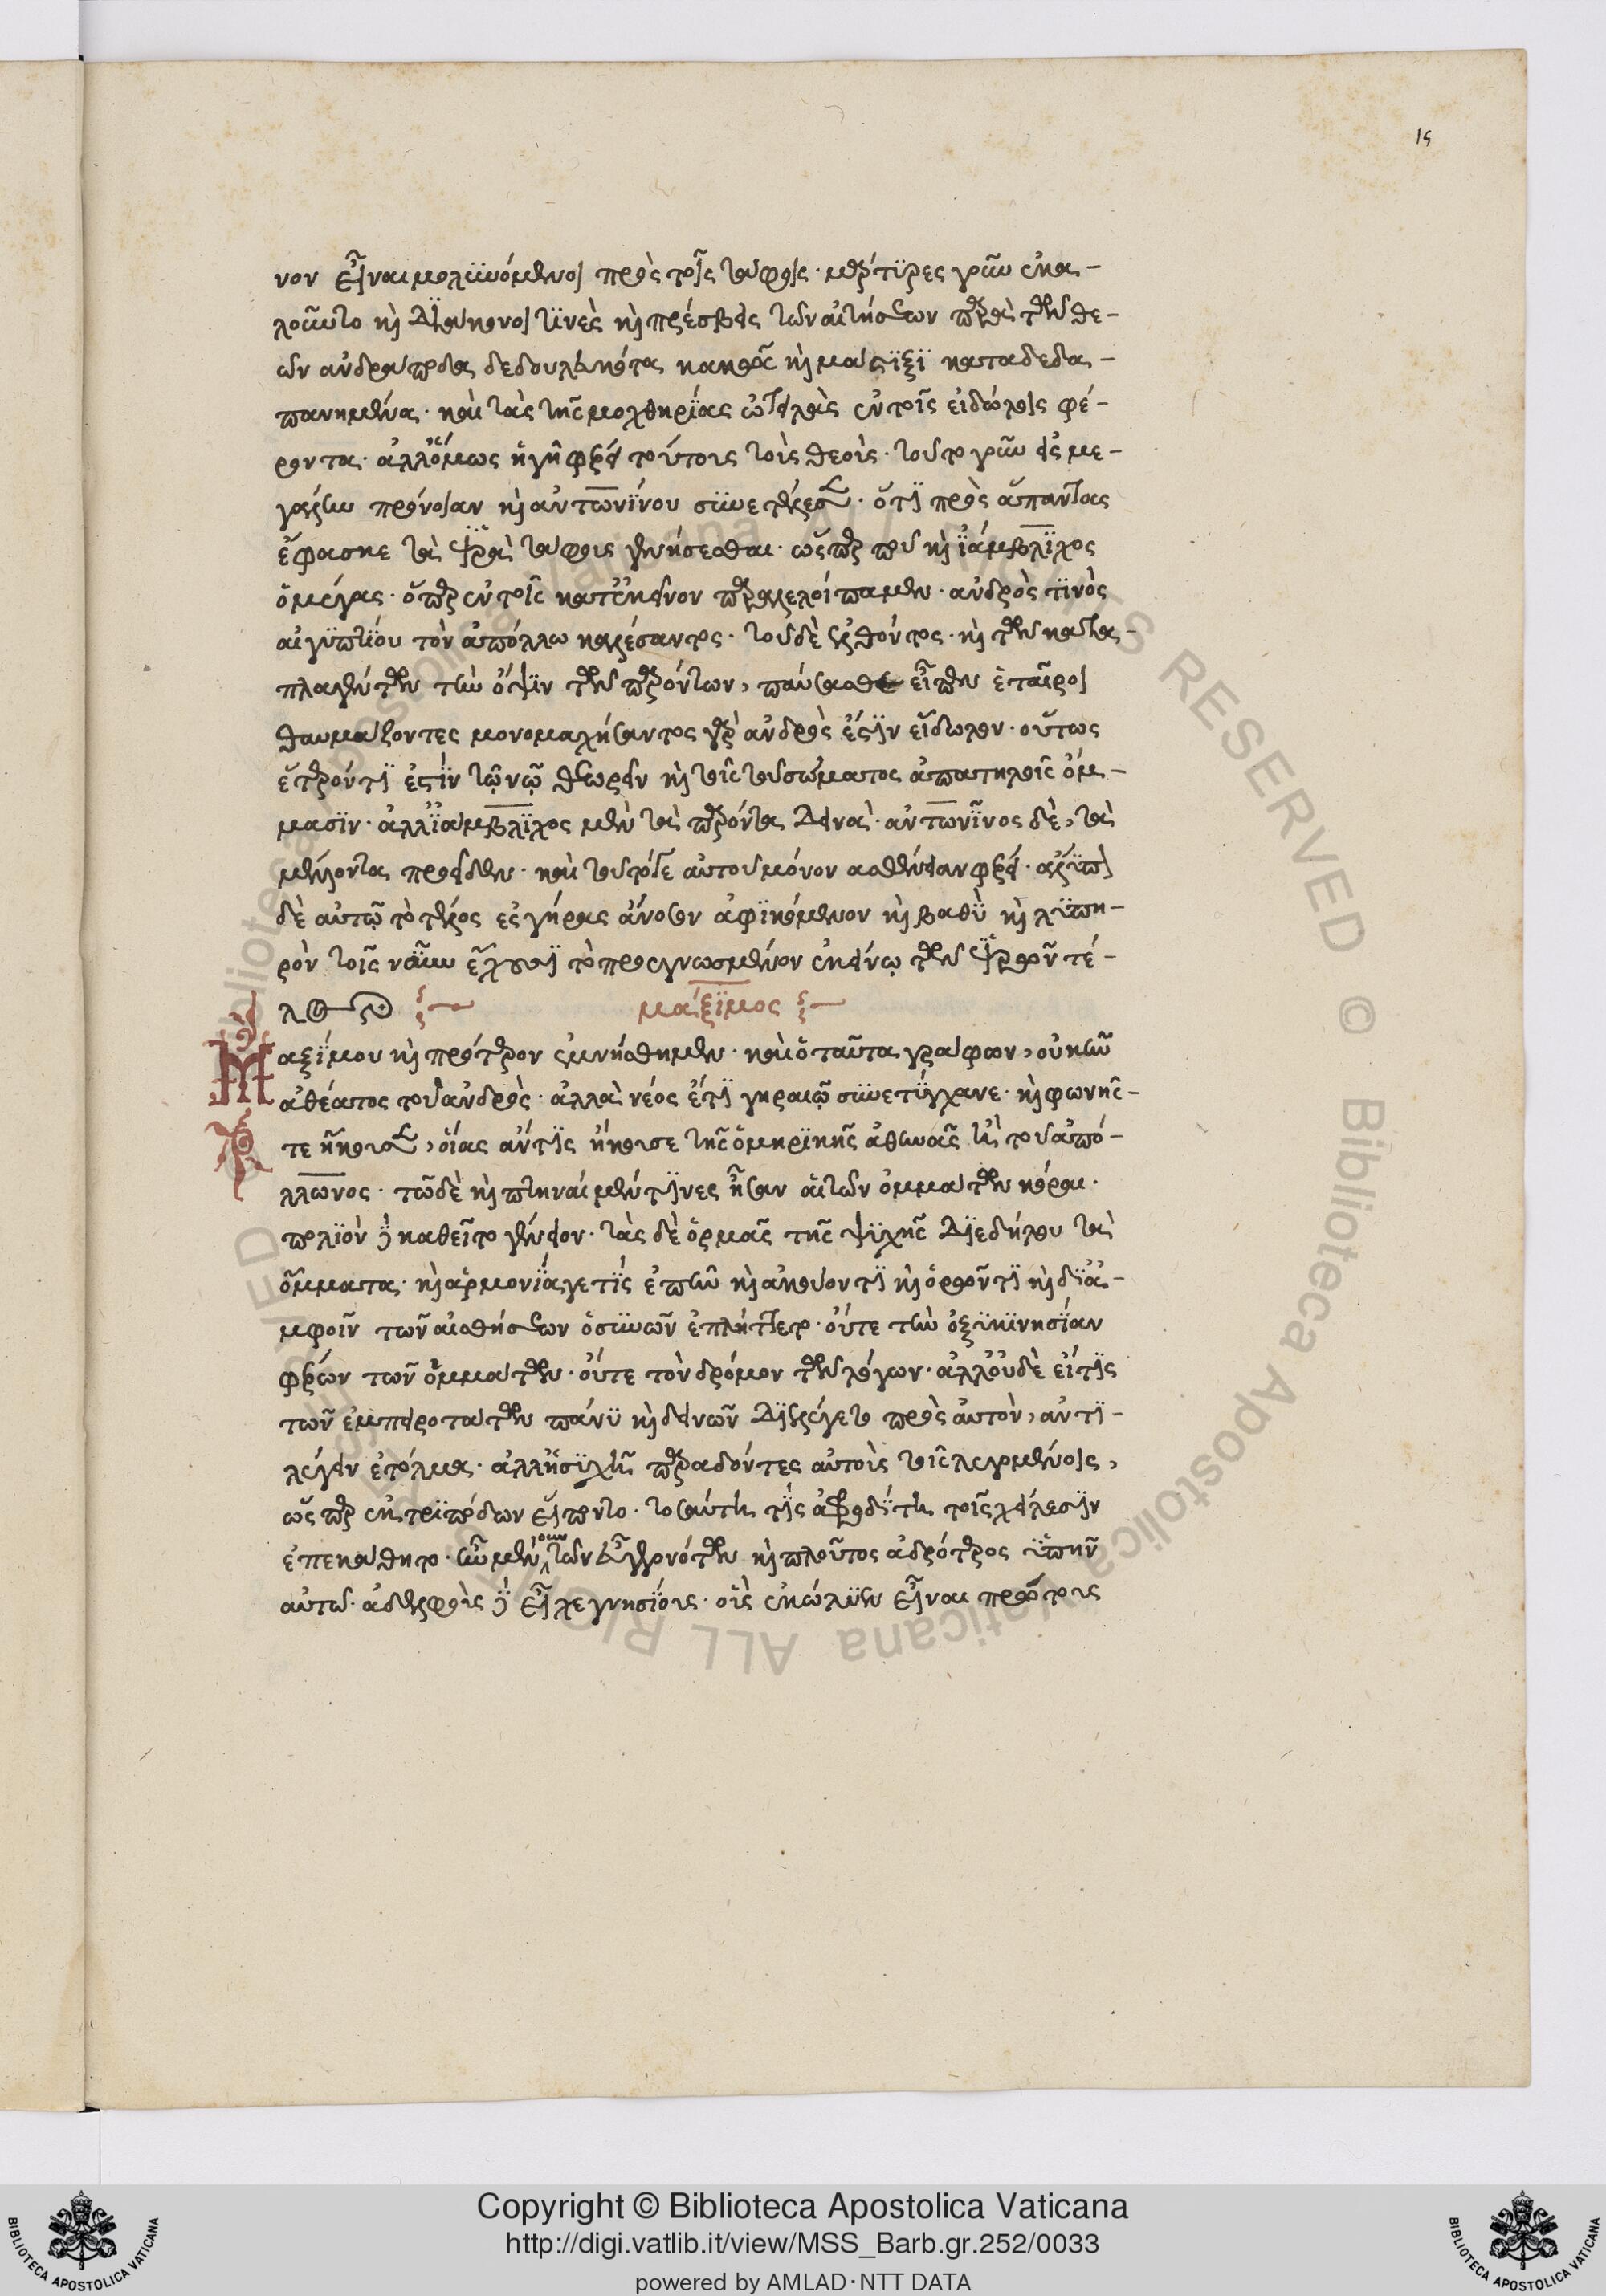 15
νον εἶναι μολϋνόμενοι πρὸς τοῖς τάφοις· μάρτϋρες γοῦν ἐκα-
λοῦντο κὶ διάκονοί τινὲς κὶ πρέσβεις τῶν αἰτήσεων παρὰ τῶν θε-
ῶν ἀνδράποδα δεδουλευκότα κακῶς κὶ μάστιξι καταδεδα-
πανημένα· καὶ τὰς τῆς μοχθηρίας ὠτειλὰς ἐν τοῖς εἰδώλοις φέ-
ροντα· ἀλλ' ὅμως ἡ γῆ φέρει τούτοις τοῖς θεοῖς· τοῦτο γοῦν εἰς με-
γάλην πρόνοιαν κὶ ἀντωνίνου συνετέλεσεν· ὅτι πρὸς ἅπαντας
ἔφασκε τὰ ἱερὰ τάφοις γενήσεσθαι· ὥσπερ που κὶ ἰάμβλιχος
ὁ μέγας· ὅπερ ἐν τοῖς κατ' ἐκεῖνον παραλελοίπαμεν· ἀνδρὸς τινὸς
αἰγυπτίου τὸν ἀπόλλω καλέσαντος· τοῦ δὲ ἐλθόντος· κὶ τῶν κατα-
πλαγέντων τὴν ὄψιν τῶν παρόντων, παύσασθε εἶπεν ἑταῖροι
θαυμάζοντες μονομαχήσαντος γὰρ ἀνδρὸς ἐστὶν εἴδωλον· οὕτως
ἕτερόν τι ἐστὶν τῷ νῷ θεωρεῖν κὶ τοῖς τοῦ σώματος ἀπατηλοῖς ὄμ-
μασιν· ἀλλ' ἰάμβλιχος μὲν τὰ παρόντα δεινὰ· ἀντωνῖνος δὲ, τὰ
μέλλοντα προεῖδεν· καὶ τοῦτό γε αὐτοῦ μόνον ἀσθένειαν φέρει· ἄλυπον
δὲ αὐτῷ τὸ τέλος ἐς γῆρας ἄνοσον ἀφικόμενον κὶ βαθὺ κὶ λυπη-
ρὸν τοῖς νοῦν ἔχουσι τὸ προεγνωσμένον ἐκείνῳ τῶν ἱερῶν τέ-
λος μάξιμος
Μαξίμου κὶ πρότερον ἐμνήσθημεν· καὶ ὁ ταῦτα γράφων, οὐκ ἦν
ἀθέατος τοῦ ἀνδρὸς· ἀλλὰ νέος ἔτι γηραιῷ συνετύγχανε· κὶ φωνῆς-
τε ἤκουσεν, οἵας ἄν τις ἤκουσε τῆς ὁμηρικῆς ἀθηνᾶς ἢ τοῦ ἀπό-
λλωνος· τῷ δὲ κὶ πτηναὶ μέν τινες ἦσαν αἱ τῶν ὀμμάτων κόραι·
πολιὸν δὲ καθεῖτο γένειον· τὰς δὲ ὁρμὰς τῆς ψυχῆς διεδήλου τὰ
ὄμματα· κὶ ἁρμονία γε τίς ἐπῆν κὶ ἀκούοντι κὶ ὁρῶντι κὶ δι' ἀ-
μφοῖν τῶν αἰσθήσεων ὁ συνὼν ἐπλήττετο· οὔτε τὴν ὀξυκινησίαν
φέρων τῶν ὀμμάτων· οὔτε τὸν δρόμον τῶν λόγων· ἀλλ' οὐδὲ εἴ τις
τῶν ἐμπειροτάτων πάνυ κὶ δεινῶν διελέγετο πρὸς αὐτὸν, ἀντι-
λέγειν ἐτόλμα· ἀλλ' ἡσυχῆ παραδόντες αὐτοὺς τοῖς λεγομένοις,
ὥσπερ ἐκ τριπόδων εἵποντο· τοσαύτη τίς ἀφροδίτη τοῖς χείλεσιν
ἐπεκάθητο· ἦν μὲν οὖν τῶν εὖ γεγονότων κὶ πλοῦτος ἁδρότερος ὑπῆν
αὐτῷ· ἀδελφοὺς δὲ εἶχε γνησίους· οὓς ἐκώλυεν εἶναι πρώτους
Copyright © Biblioteca Apostolica Vaticana
http://digi.vatlib.it/view/MSS_Barb.gr.252/0033
powered by AMLAD·NTT DATA